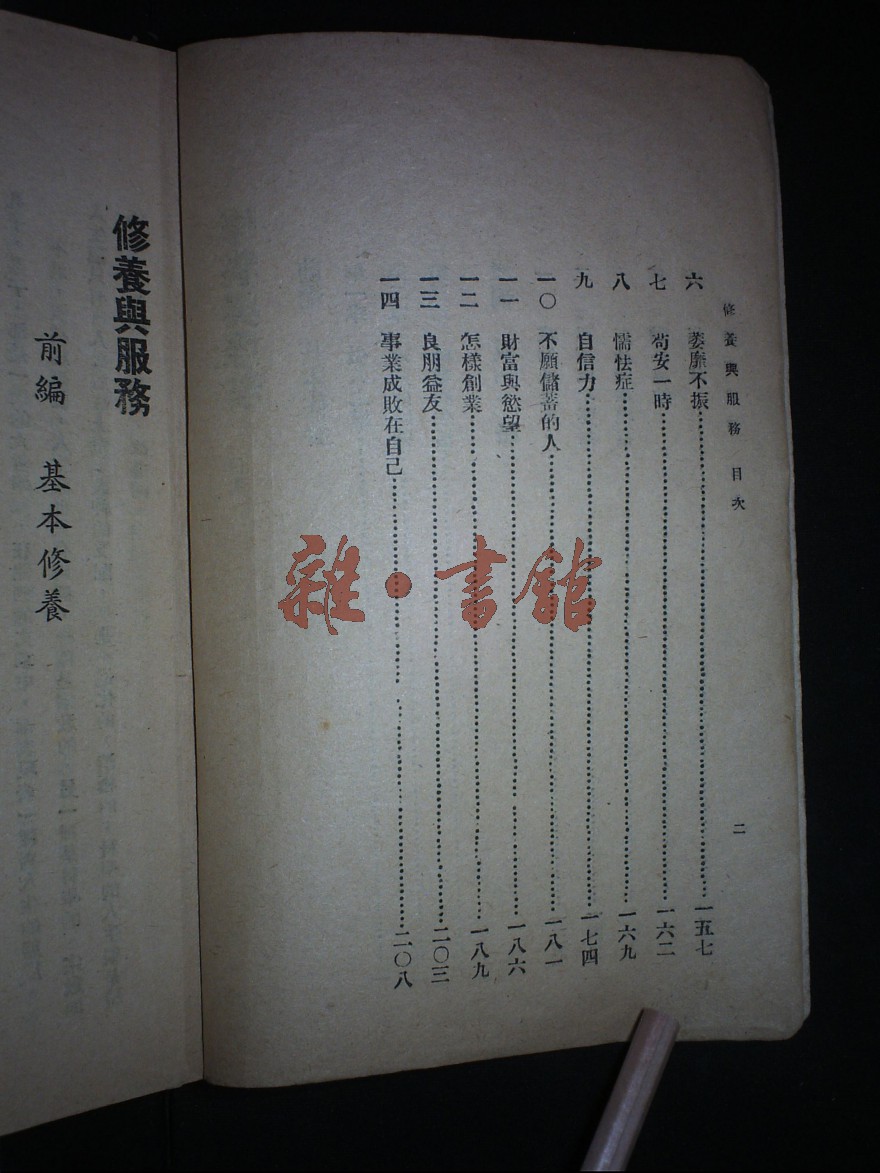 修養與服務 目次
二
六 萎靡不振 一五七
七 苟安一時 一六二
八 懦怯症 一六九
九 自信力 一七四
一〇 不願儲蓄的人 一八一
一一 財富與慾望 一八六
一二 怎樣創業 一八九
一三 良朋益友 二〇三
一四 事業成敗在自己 二〇八
修養與服務
前編 基本修養
雜·書館